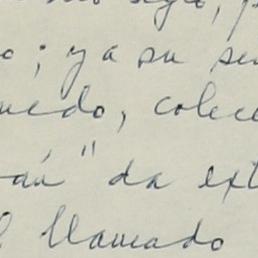 siglo,
o; ya su se
uedo, colec
" da ext
llamado